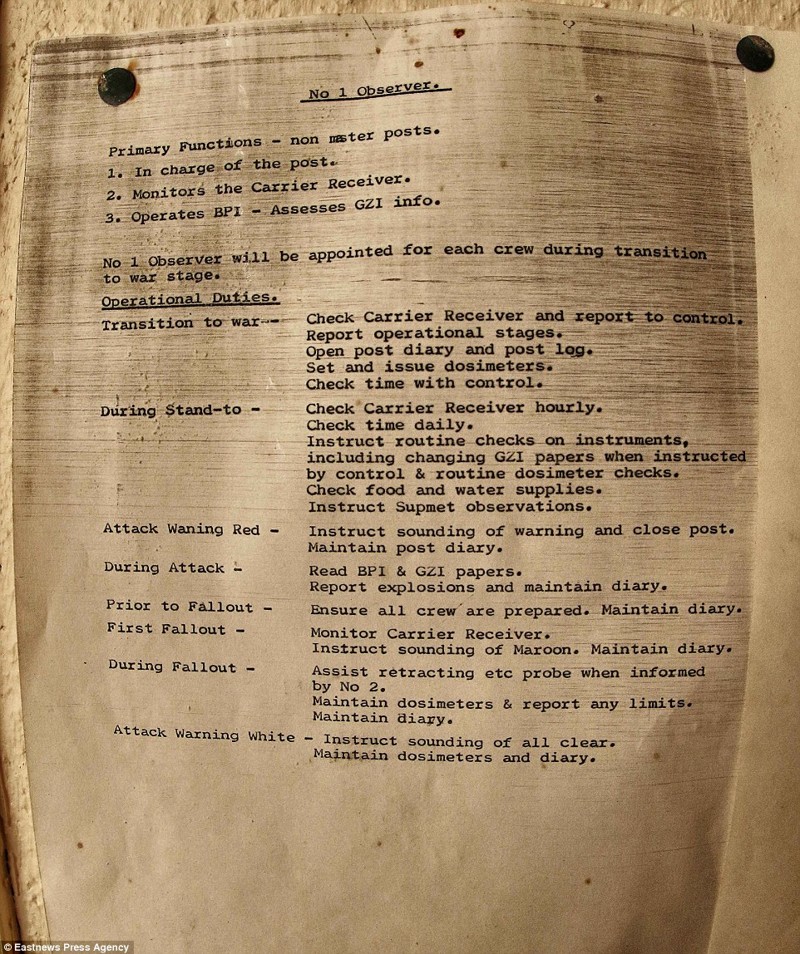 No 1 Observer.
Primary Functions - non master posts.
1. In charge of the post.
2. Monitors the Carrier Receiver.
3. Operates BPI - Assesses GZI info.
No 1 Observer will be appointed for each crew during transition
to war stage.
Operational Duties.
Transition to war -- Check Carrier Receiver and report to control.
Report operational stages.
Open post diary and post log.
Set and issue dosimeters.
Check time with control.
During Stand-to - Check Carrier Receiver hourly.
Check time daily.
Instruct routine checks on instruments,
including changing GZI papers when instructed
by control & routine dosimeter checks.
Check food and water supplies.
Instruct Supmet observations.
Attack Waning Red - Instruct sounding of warning and close post.
Maintain post diary.
During Attack - Read BPI & GZI papers.
Report explosions and maintain diary.
Prior to Fallout - Ensure all crew are prepared. Maintain diary.
First Fallout - Monitor Carrier Receiver.
Instruct sounding of Maroon. Maintain diary.
During Fallout - Assist retracting etc probe when informed
by No 2.
Maintain dosimeters & report any limits.
Maintain diary.
Attack Warning White - Instruct sounding of all clear.
Maintain dosimeters and diary.
© Eastnews Press Agency